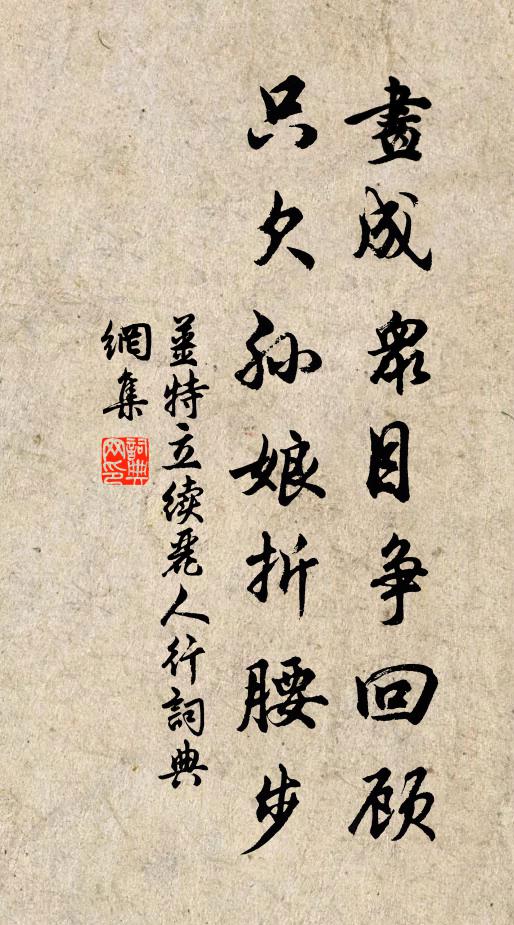 畫成衆目争回顾
只欠孙娘折腰步
姜特立续麗人行詞典
網集
詞典
网印